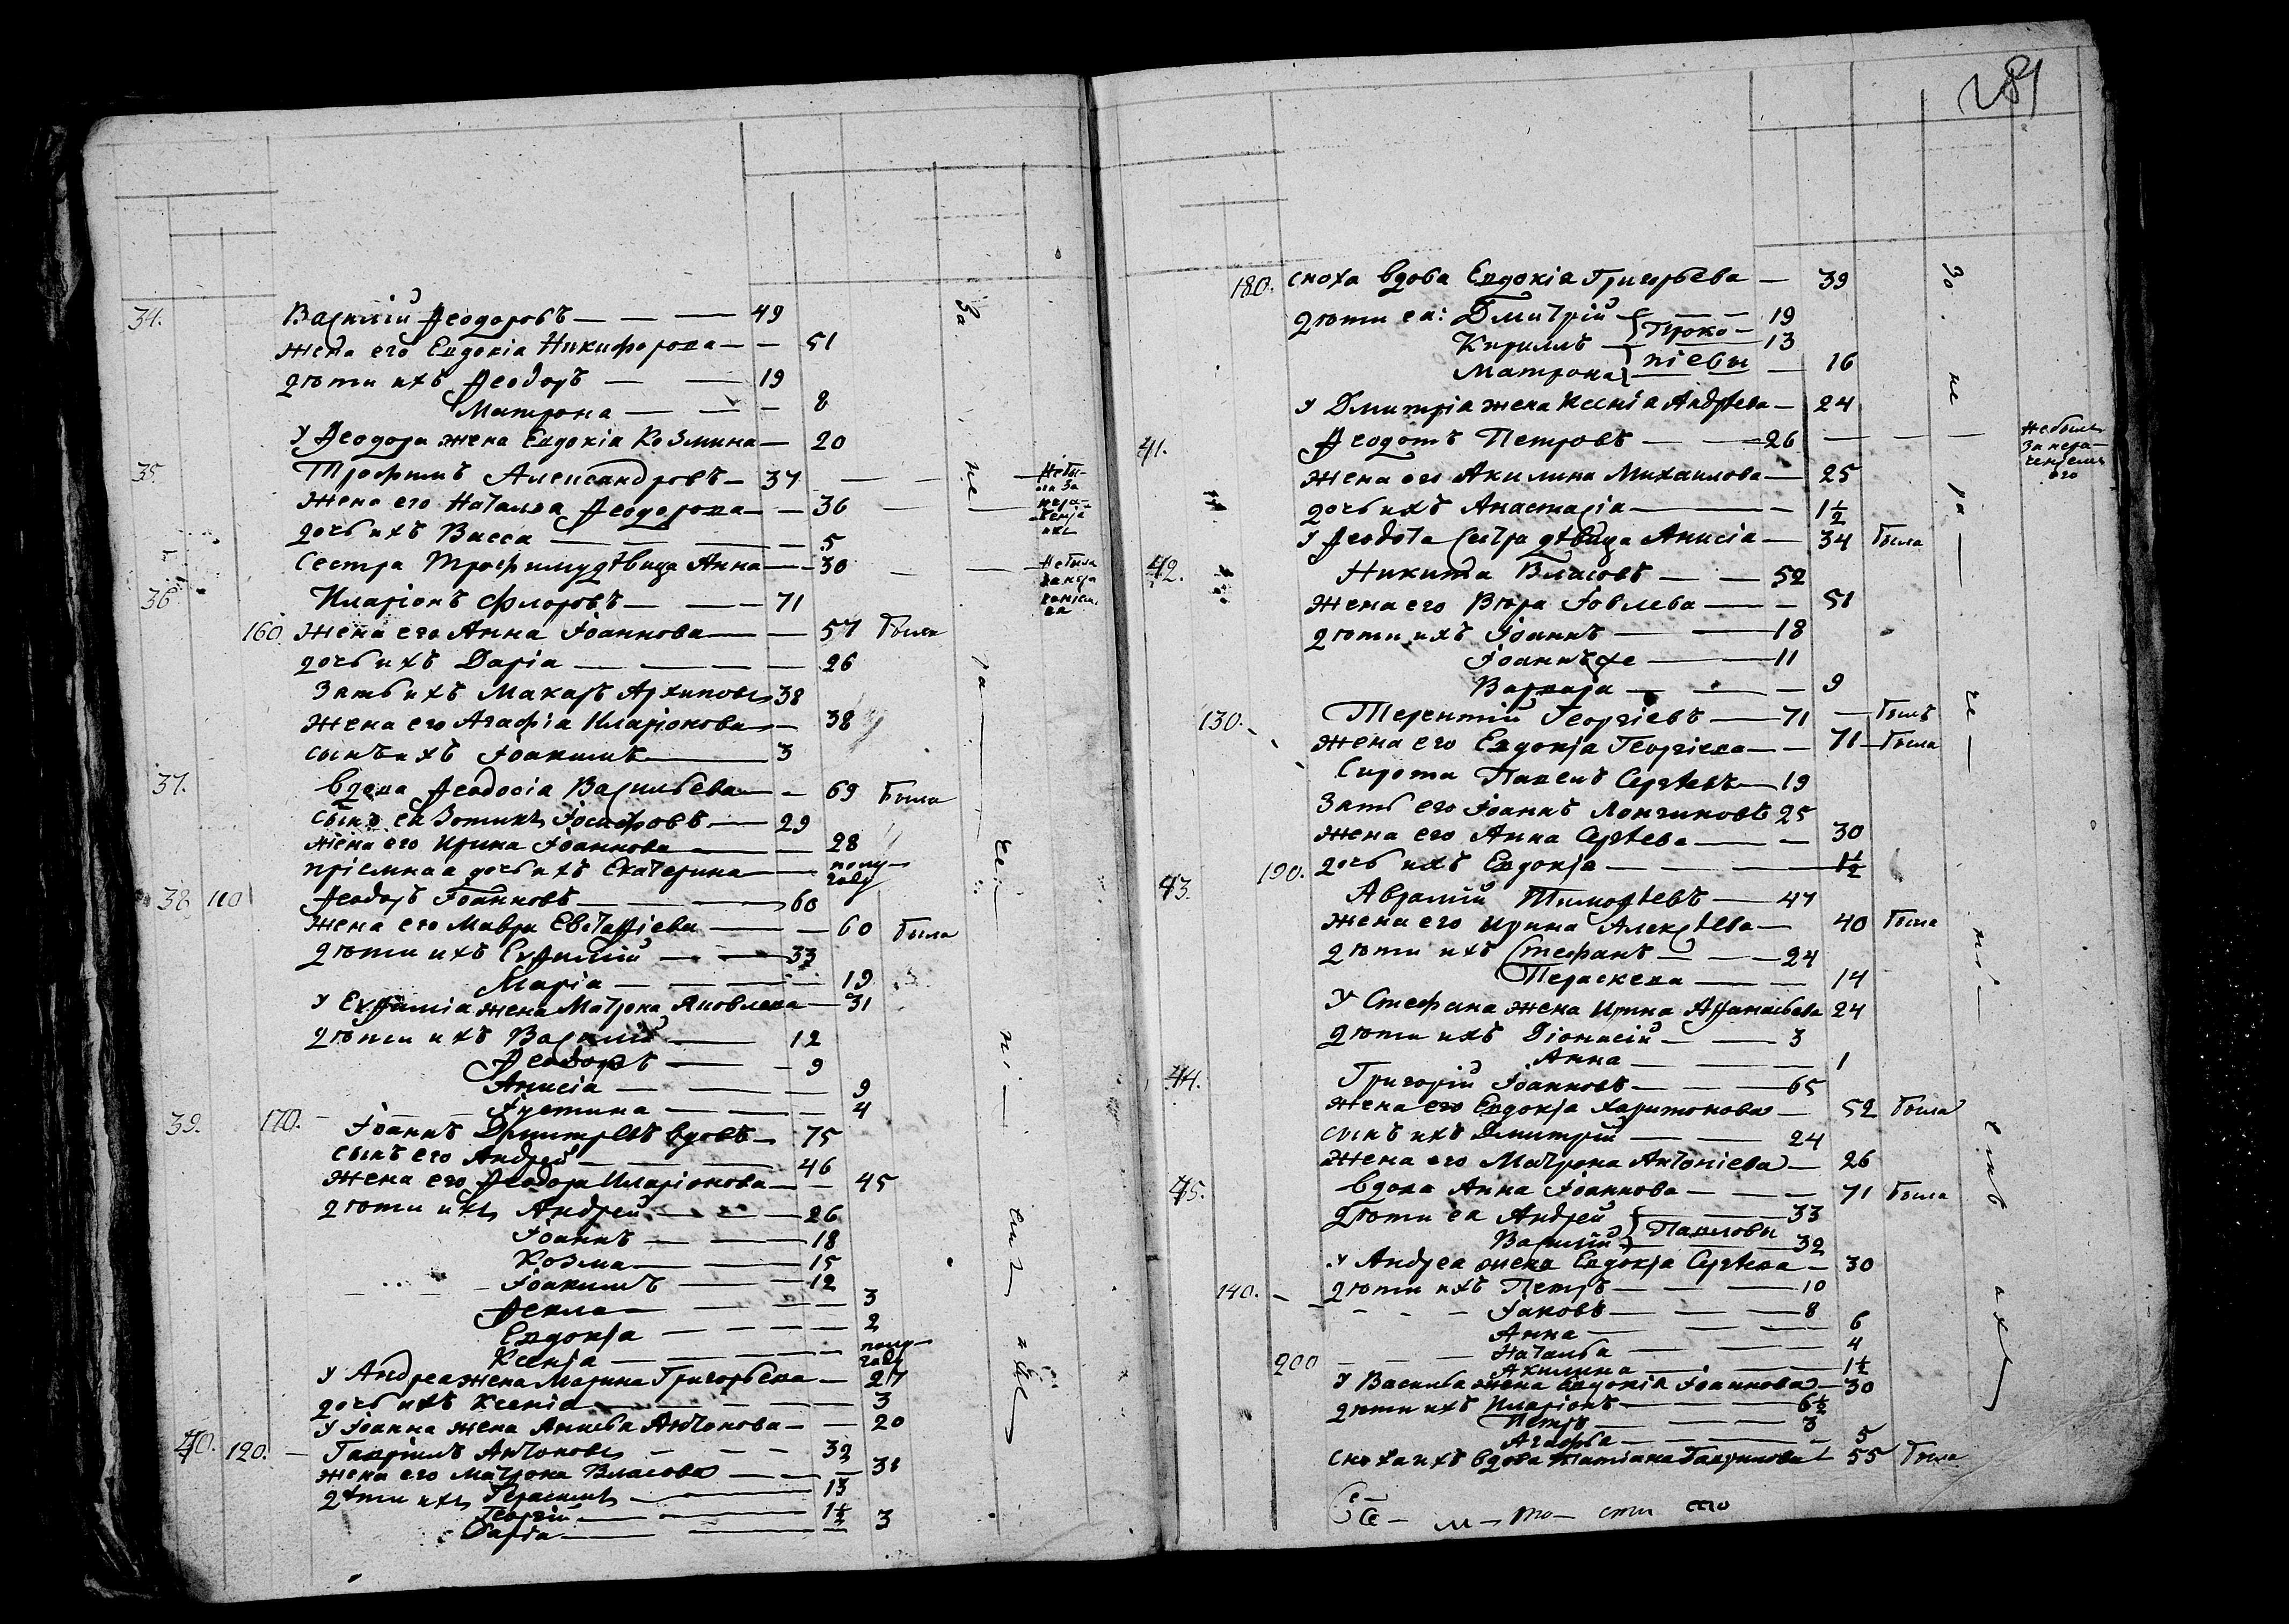 281
34. Василій Ѳеодоровъ — — — 49
жена его Евдокіа Никифорова — — 51
дѣти ихъ Ѳеодоръ — — 19
Матрона — — — 8
У Ѳеодора жена Евдокіа Козмина — 20
35. Трофимъ Александровъ — 37 — — — Не бы-
жена его Наталья Ѳеодорова — — 36 — —
дочь ихъ Васса — — — — 5
Сестра Трофиму дѣвица Анна — — 30 — — Не была
36 Иларіонъ Флоровъ — — — 71
160. жена его Анна Іоаннова — — 57 Была
дочь ихъ Даріа — — — — 26
Зать ихъ Макаръ Архиповъ 38
жена его Агафіа Иларіонова — 38
сынъ ихъ Іоакимъ — 3
37. вдова Ѳеодосіа Васильева — — 69 Была
сынъ ея Зотикъ Іосифовъ — 29
жена его Ирина Іоаннова — — 28
пріемная дочь ихъ Екатерина — — полу-
году
38 110 Ѳеодоръ Іоанновъ — — 60
жена его Мавра Евстафіева — — 60 Была
дѣти ихъ Евѳимій — — 33
Маріа — — — — 19
У Евѳиміа жена Матрона Яковлева — 31
дѣти ихъ Василій — 12
Ѳеодоръ — — 9
Анисіа — — — — 9
Іустина — — — 4
39. 170. Іоаннъ Димитріевъ вдовъ — 75
сынъ его Андрей — — — 46
жена его Ѳеодора Иларіонова — — 45
дѣти ихъ Андрей — — — 26
Іоаннъ — — — 18
Козма — — 15
Іоакимъ — — 12
Ѳекла — — — — 3
Евдокіа — — — — 2
Ксеніа — — — — полу-
году
У Андреа жена Марина Григорьева — 27
дочь ихъ Ксеніа — — — 3
У Іоанна жена Анисья Антонова — — 20
40. 120. — Гавріилъ Антоновъ — — — 32
жена его Матрона Власова — — — 31
дѣти ихъ Герасимъ — — 13
Георгій — — 1½
Даріа — — — 3
За не ра че ні емъ ихъ
180. сноха вдова Евдокіа Григорьева — 39
дѣти ея: Дмитрій } — — 19
Кириллъ } Проко- 13
Матрона } піевы — 16
У Дмитріа жена Ксеніа Андрѣева — 24
41. Ѳеодотъ Петровъ — — 26 — — — Не былъ
за нера-
ченіемъ
его
жена его Акилина Михаилова — 25
дочь ихъ Анастасіа — — — 1½
У Ѳеодота сестра дѣвица Анисіа — 34 Была
42. Никита Власовъ — — 52
жена его Вѣра Іовлева — — 51
дѣти ихъ Іоаннъ — — 18
Іоаннъ же — — 11
Варвара — — — 9
130. Терентій Георгіевъ — 71 — Былъ
жена его Евдокіа Георгіева — — 71 — Была
Сирота Павелъ Сергѣевъ — 19
Зать его Іоаннъ Лонгиновъ 25
жена его Анна Сергѣева — — 30
190. дочь ихъ Евдокіа — — — 1½
43. Аврамій Тимоѳѣевъ — 47
жена его Ирина Алексѣева — 40 Была
дѣти ихъ Стефанъ — — — 24
Параскева — — — 14
У Стефана жена Ирина Аѳанасьева 24
дѣти ихъ Діонисій — — 3
Анна — — — — 1
44. Григорій Іоанновъ — — — 65
жена его Евдокіа Харитонова — 52 Была
сынъ ихъ Дмитрій — — 24
жена его Матрона Антоніева — 26
45. вдова Анна Іоаннова — — — 71 Была
дѣти ея Андрей } — — 33
Василій } Павловы 32
У Андреа жена Евдокіа Сергѣева — 30
140. — дѣти ихъ Петръ — — — 10
Іаковъ — — — 8
Анна — — — — 6
Наталья — — — 4
200 — — — Акилина — — — 1½
У Василья жена Евдокіа Іоаннова — 30
дѣти ихъ Иларіонъ — — — 6½
Петръ — — — 3
Агафья — — — — 5
Сноха ихъ вдова Татіана Гаврилова — 55 Была
За не ра че ні емъ ихъ